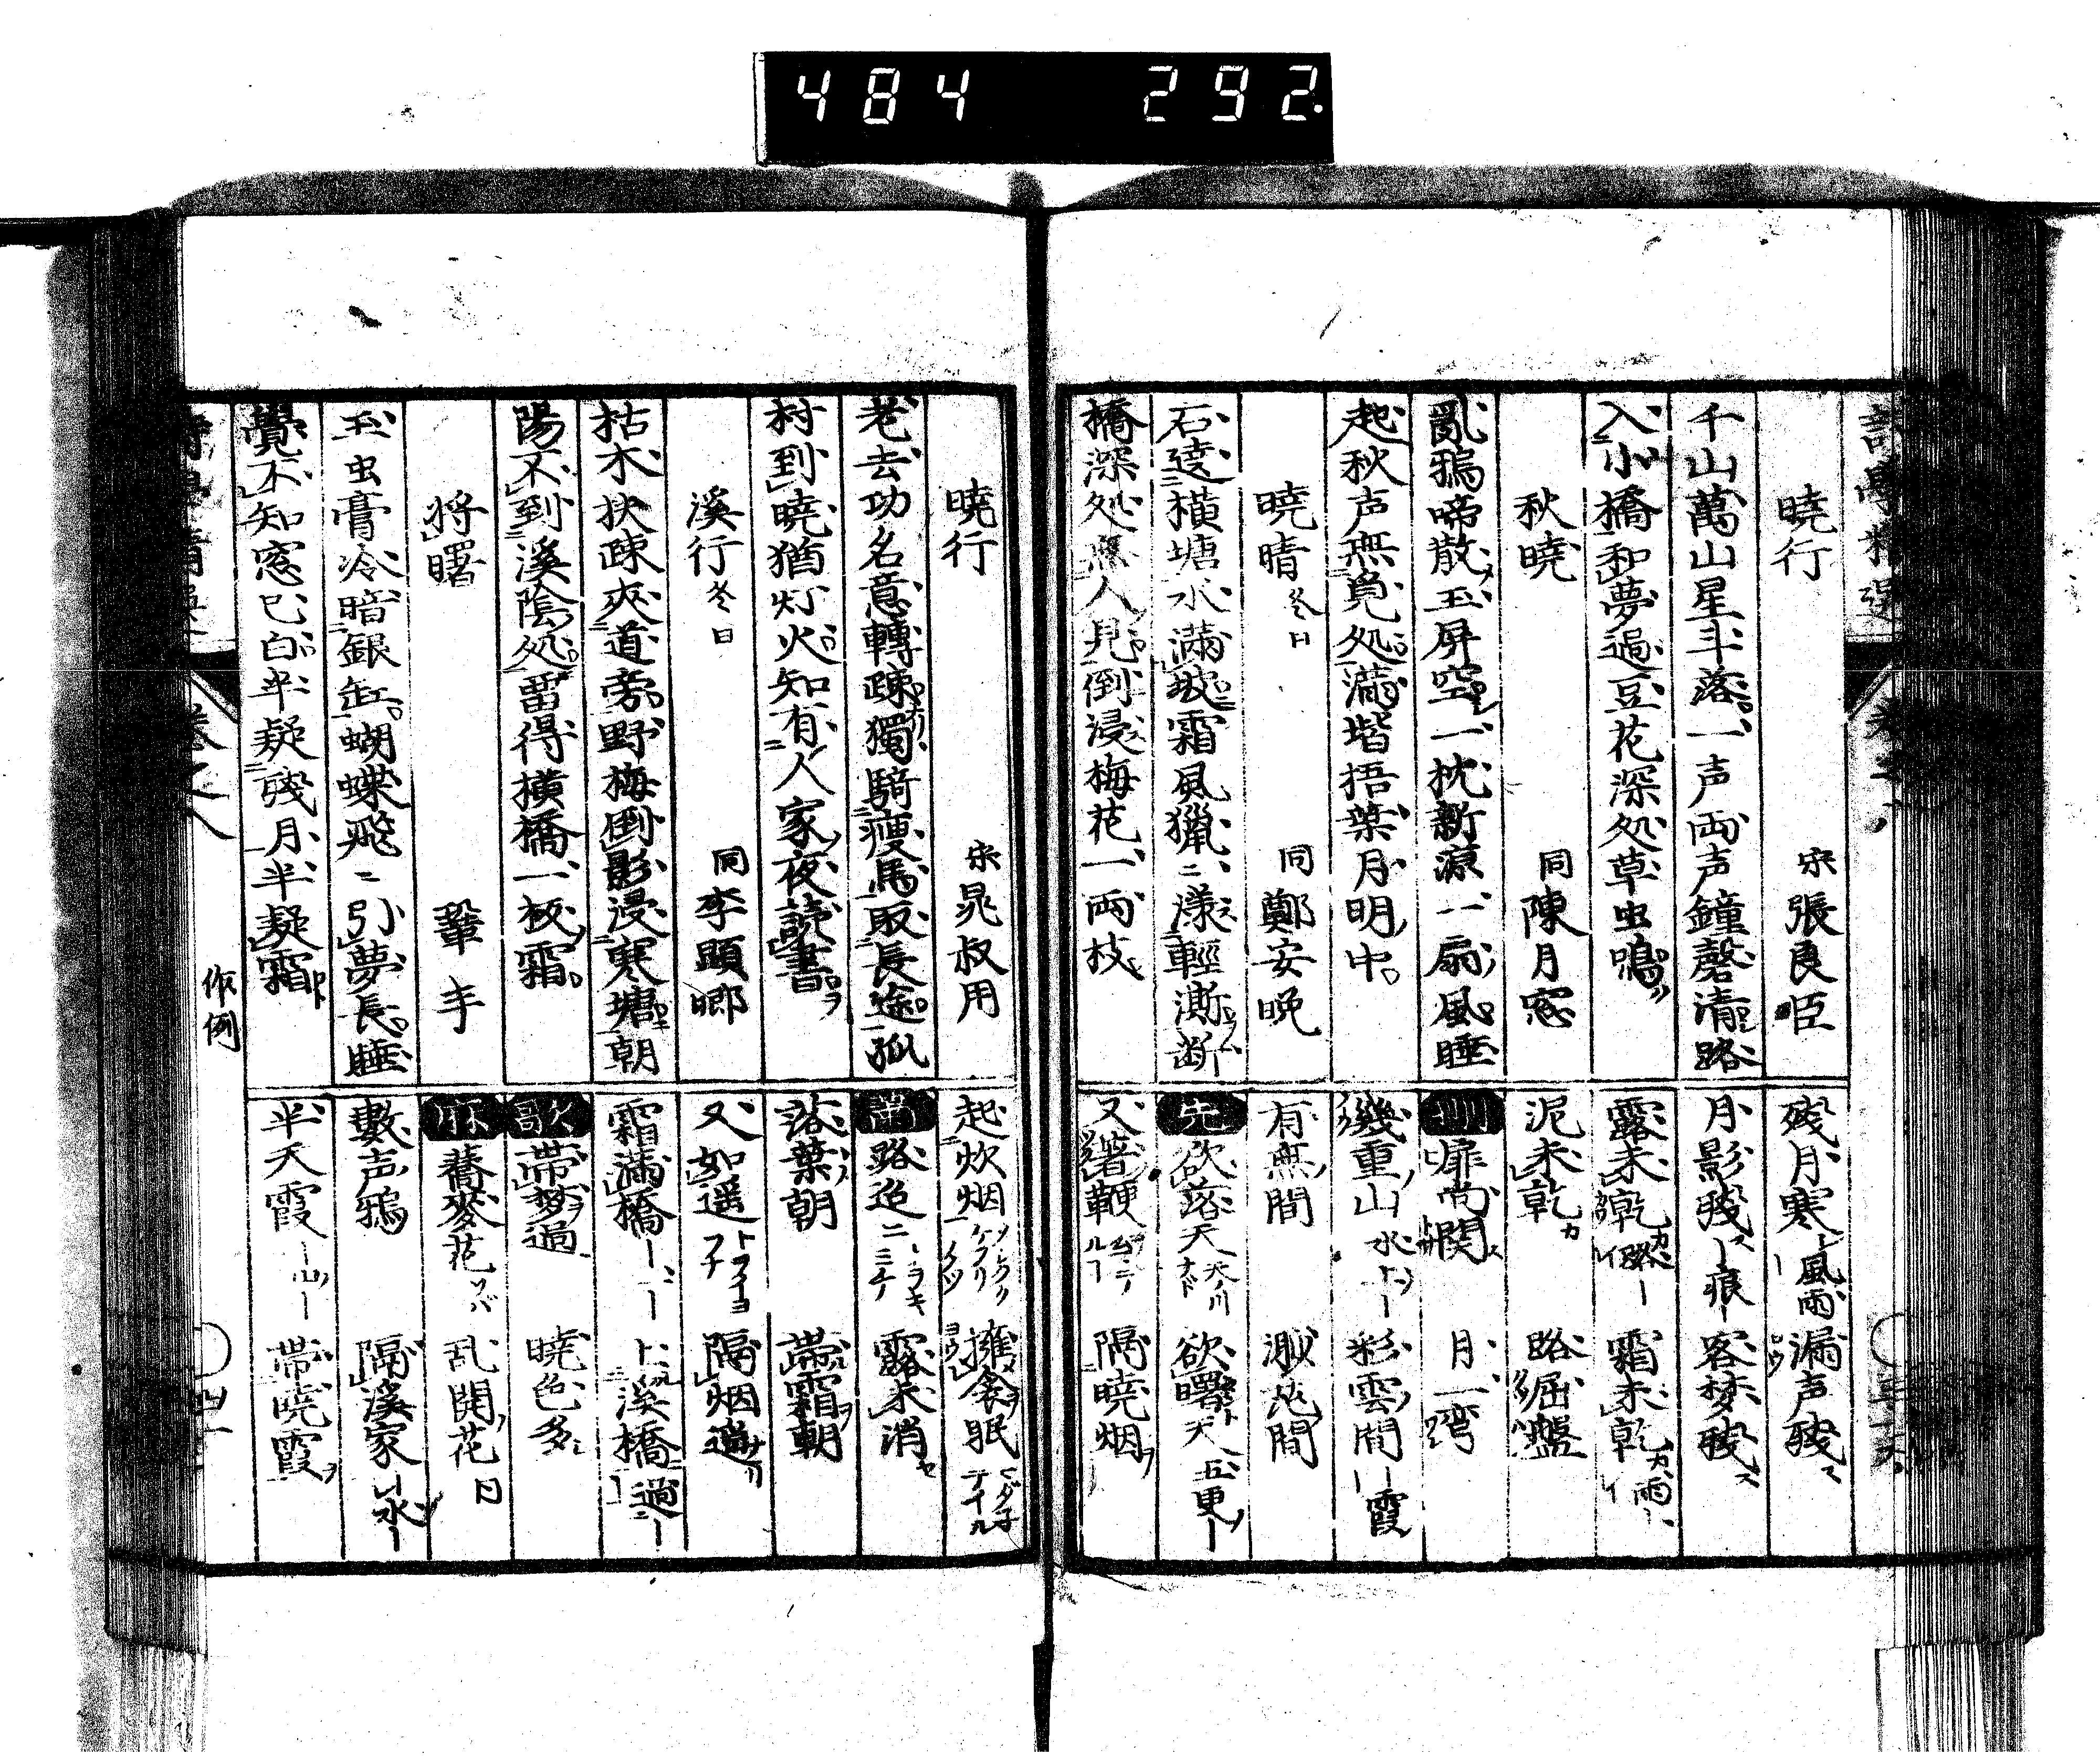 484 292
暁行 宋 張良臣
千山萬山星斗落一声両声鐘磬清路
入小橋和夢過豆花深処草虫鳴
秋暁 同 陳月窓
亂鴉啼散玉屏空一枕新凉一扇風睡
起秋声無覓処滿堦梧葉月明中
暁晴 冬日 同 鄭安晩
石邊橫塘水滿坡霜風獵ニ漾輕澌断
橋深処無人見倒浸梅花一両枝
残月寒 風雨 漏声残
月影残 痕 客梦残
露未乾 路 霜未乾 雨
泥未乾 路屈盤
刪 扉尚関 月一弯
幾重山 水 彩雲間 霞
有無間 渺茫間
先 欲落天 天ノ川 欲曙天 五更
又著鞭 隔暁烟
暁行 宋 晁叔用
老去功名意轉疎獨騎瘦馬取長途孤
村到暁猶灯火知有人家夜読書
溪行 冬日 同 李顕卿
枯木扶疎夾道旁野梅倒影浸寒塘朝
陽不到溪陰処留得橫橋一板霜
将曙 鞏手
玉虫膏冷暗銀缸蝴蝶飛ニ引夢長睡
覺不知窓已白半疑残月半疑霜
作例
起炊烟 擁衾眠
蕭 路迢ニ ミチ 露未消
落葉朝 帯霜朝
又如遥 隔烟遥
霜滿橋 上溪橋 過
歌 帯梦過 暁色多
麻 蕎麥花 ソバ 乱開花
數声鴉 隔溪家 水
半天霞 山 帯暁霞